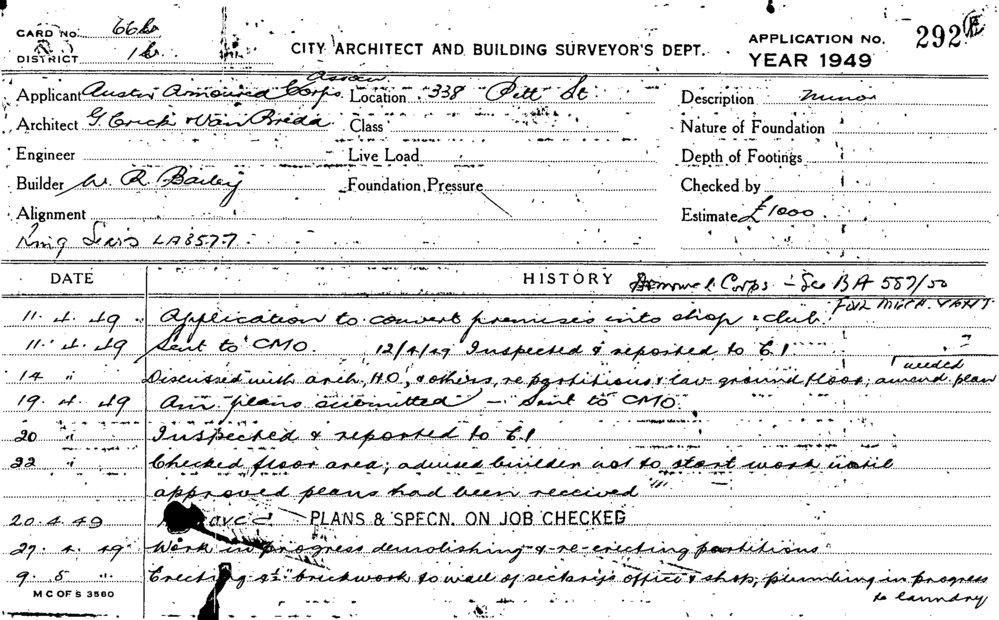 CARD No. 66b
DISTRICT 1b
CITY ARCHITECT AND BUILDING SURVEYOR'S DEPT.
APPLICATION No. 292
YEAR 1949
Assn
Applicant Austn Armoured Corps Location 338 Pitt St Description minor
Architect G. Crick & Van Breda Class Nature of Foundation
Engineer Live Load Depth of Footings
Builder W. R. Bailey Foundation Pressure Checked by
Alignment Estimate £1000
LA3577
DATE HISTORY Armoured Corps - See BA 587/50
FUR
11. 4. 49 Application to convert premises into shop & club.
11. 4. 49 Sent to CMO. 12/4/49 Inspected & reported to C.I
needed
14 " Discussed with arch, H.O, & others, re partitions & lav ground floor, amend plan
19. 4. 49 Am plans submitted - Sent to CMO.
20 " Inspected & reported to C.I
22 " Checked floor area; advised builder not to start work until
approved plans had been received
20. 4. 49 PLANS & SPECN. ON JOB CHECKED
27. 4. 49 Work in progress demolishing & re-erecting partitions
9. 5 " Erecting brickwork to wall of office & shop, plumbing in progress
to laundry
M C OF S 3560